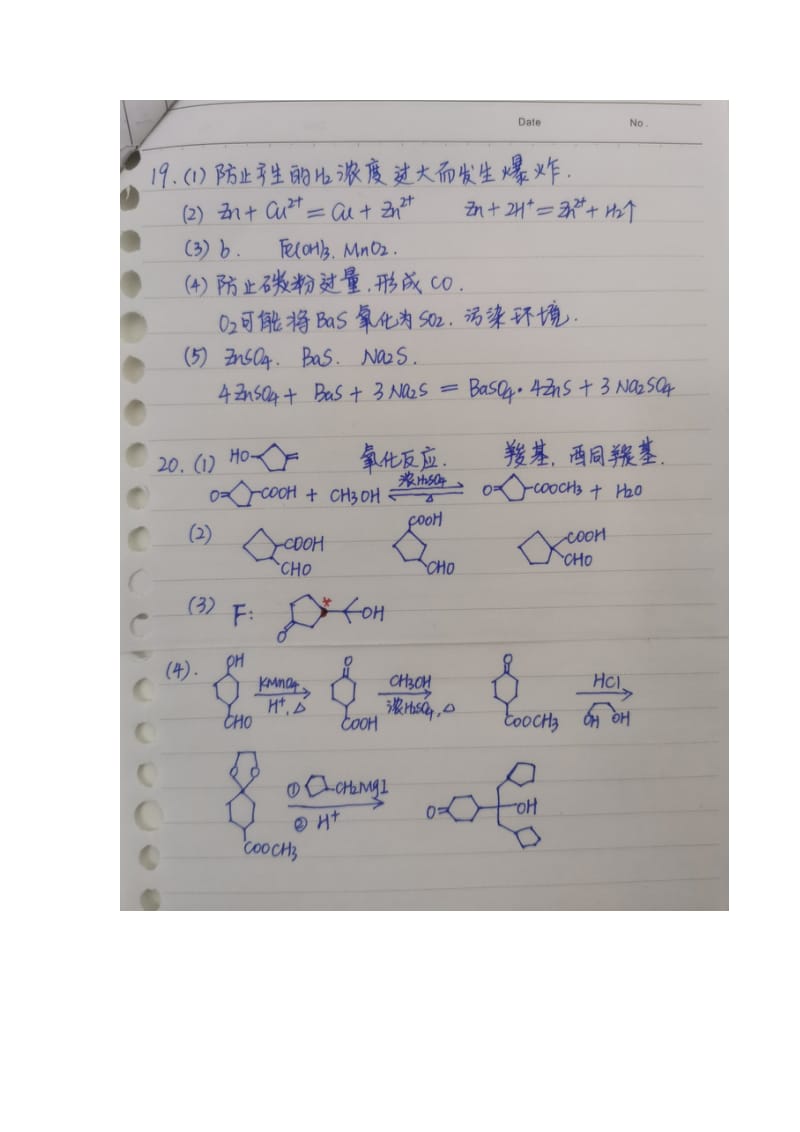 Date No.
19.(1) 防止产生的H₂浓度过大而发生爆炸.
(2) Zn + Cu²⁺ = Cu + Zn²⁺ Zn + 2H⁺ = Zn²⁺ + H₂↑
(3) b. Fe(OH)₃、MnO₂.
(4) 防止碳粉过量,形成CO.
O₂可能将BaS氧化为SO₂,污染环境.
(5) ZnSO₄、BaS、Na₂S.
4ZnSO₄ + BaS + 3Na₂S = BaSO₄·4ZnS + 3Na₂SO₄
20.(1) HO 氧化反应. 羧基,酉同羰基.
浓H₂SO₄
O= COOH + CH₃OH ⇌ O= COOCH₃ + H₂O
△
(2) COOH CHO COOH CHO COOH CHO
(3) F: O * OH
(4). OH CHO KMnO₄ H⁺,△ O COOH CH₃OH 浓H₂SO₄,△ O COOCH₃ HCl OH OH
O O COOCH₃ ① CH₂MgI ② H⁺ O= OH